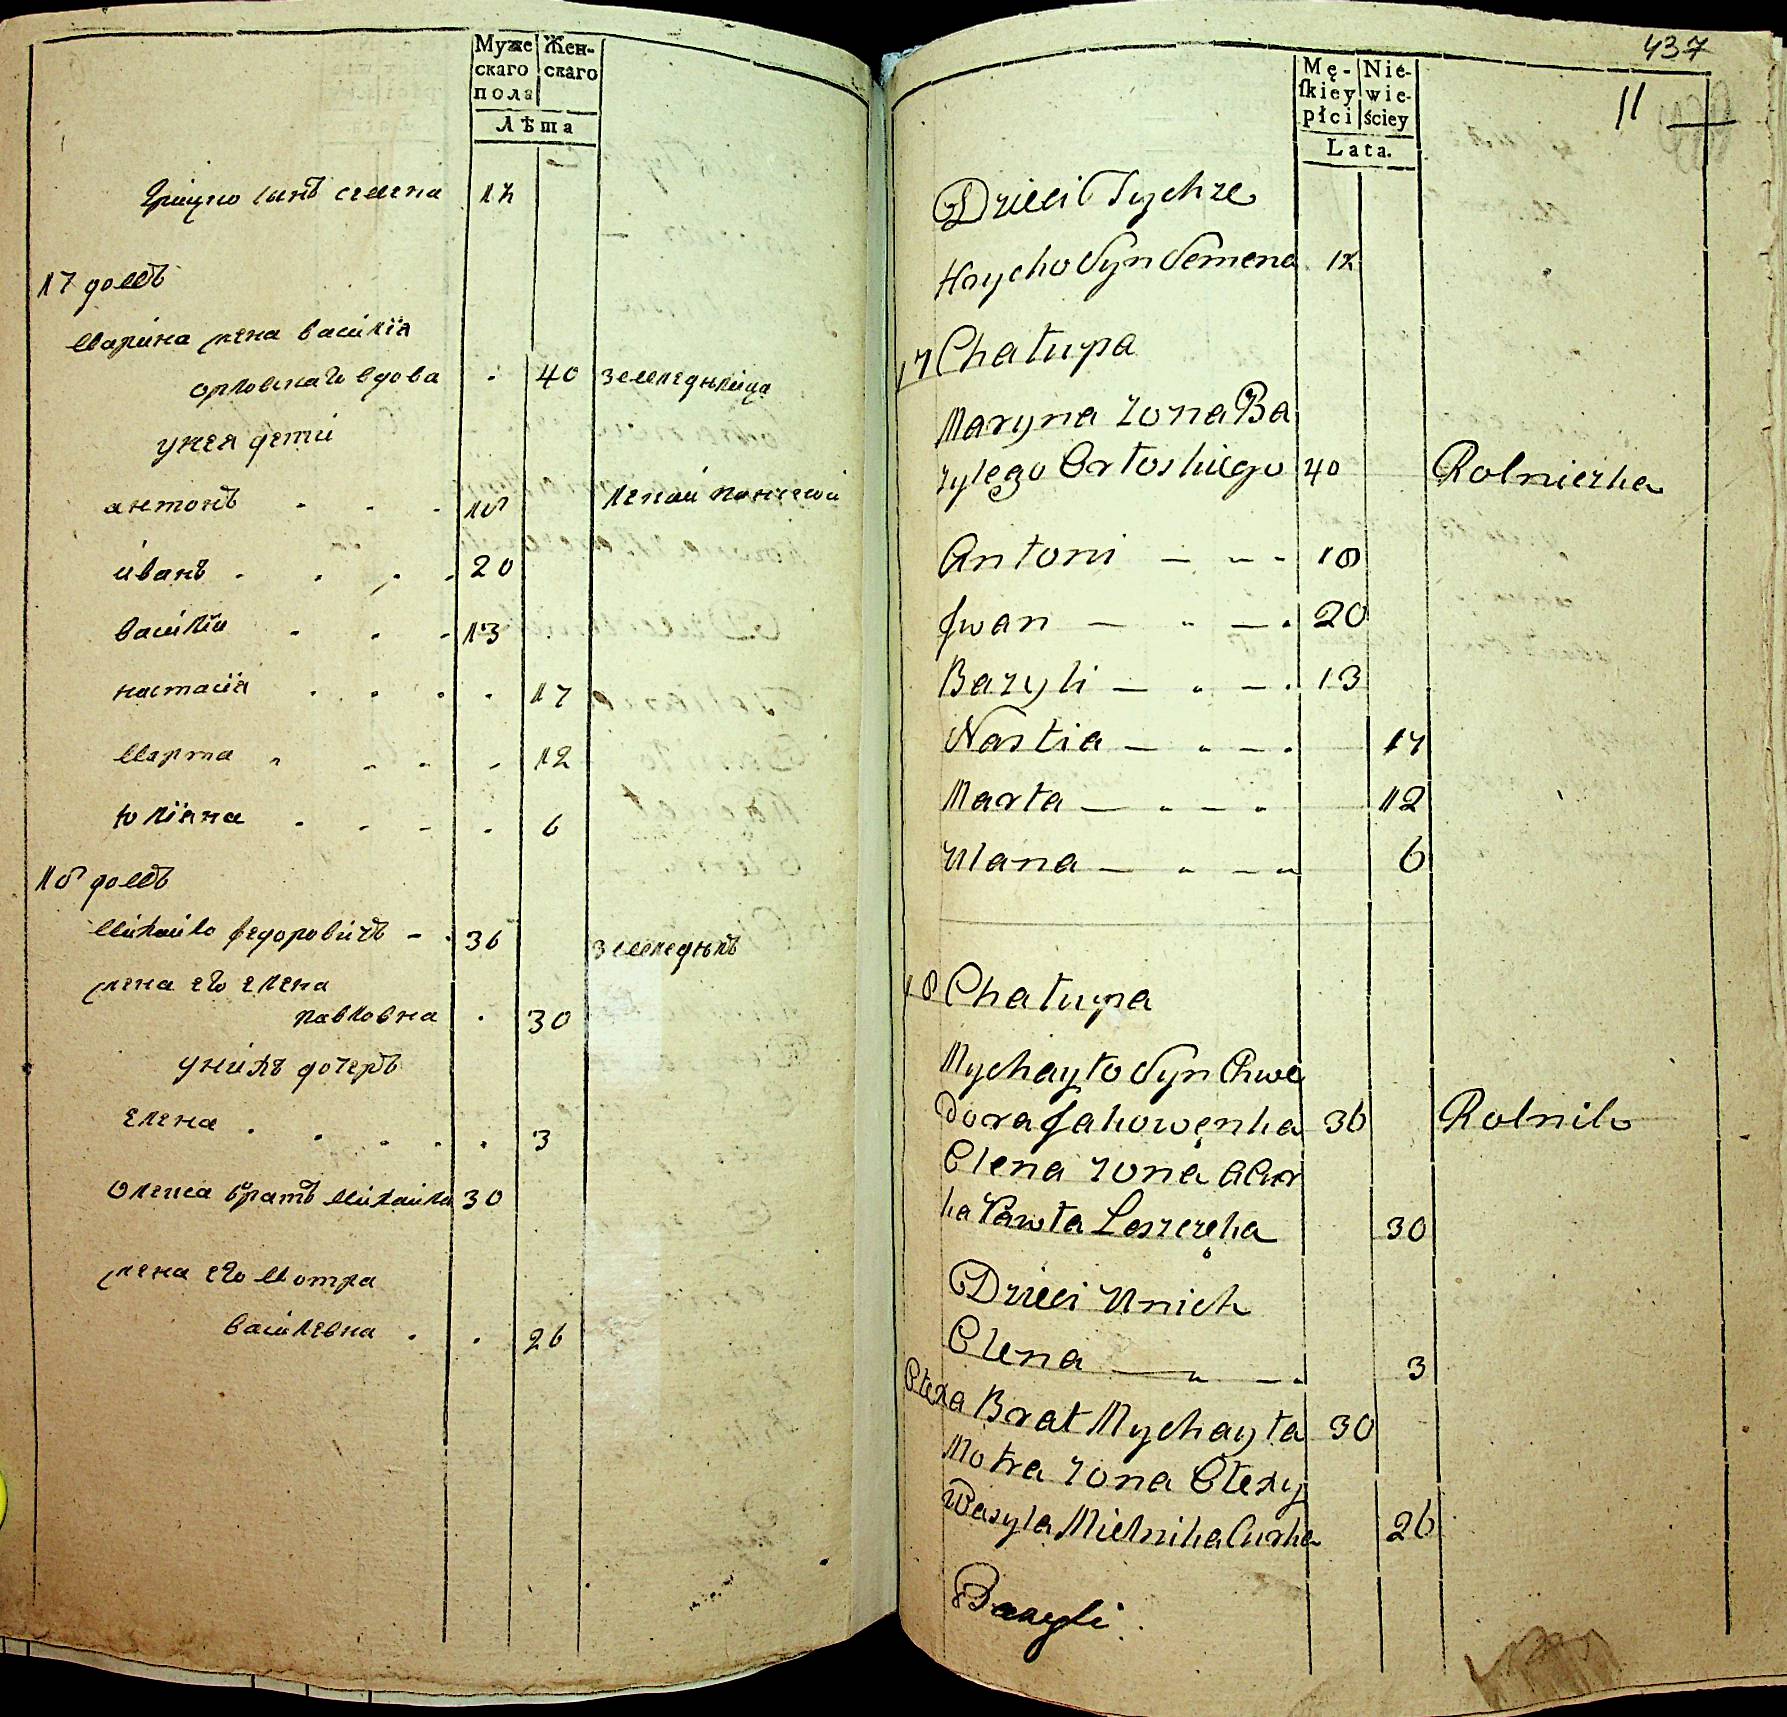 Муже Жен-
скаго скаго
пола
Лѣта
Грицко сынъ семена 12
17 домъ
Марина жена василія
орловскаго вдова . 40 земледелица
унея дети
антонъ . . . 18
иванъ . . . . 20
василии . . . 13
настасія . . . . 17
Марта . . . . 12
юліяна . . . . 6
18 домъ
Михаило федоровичъ - . 36 земледелъ
жена его елена
павловна . 30
унихъ дочеръ
елена . . . . . 3
олекса братъ михаила 30
жена его мотра
василевна . . 26
437
11
Mę- Nie-
skiey wie-
płci ściey
Lata.
Dzieci Tychże
Hrycko Syn Semena 12
17 Chałupa
Maryna żona Ba
zylego Orłoskiego 40 Rolniczka
Antoni — - - 18
Jwan — - — . 20
Bazyli — - — . 13
Nastia — - — . 17
Marta — - — - 12
Ulana — - — - 6
18 Chałupa
Mychayło Syn Chwe
dora Jakowęnka 36 Rolnik
Elena żona a Cur
ka Pawła Leszczęka 30
Dzieci Unich
Elena — - — . 3
Ołexa Brat Mychayła 30
Motra żona Ołexy
Wasyla Mielnika Curka 26
Bazyli